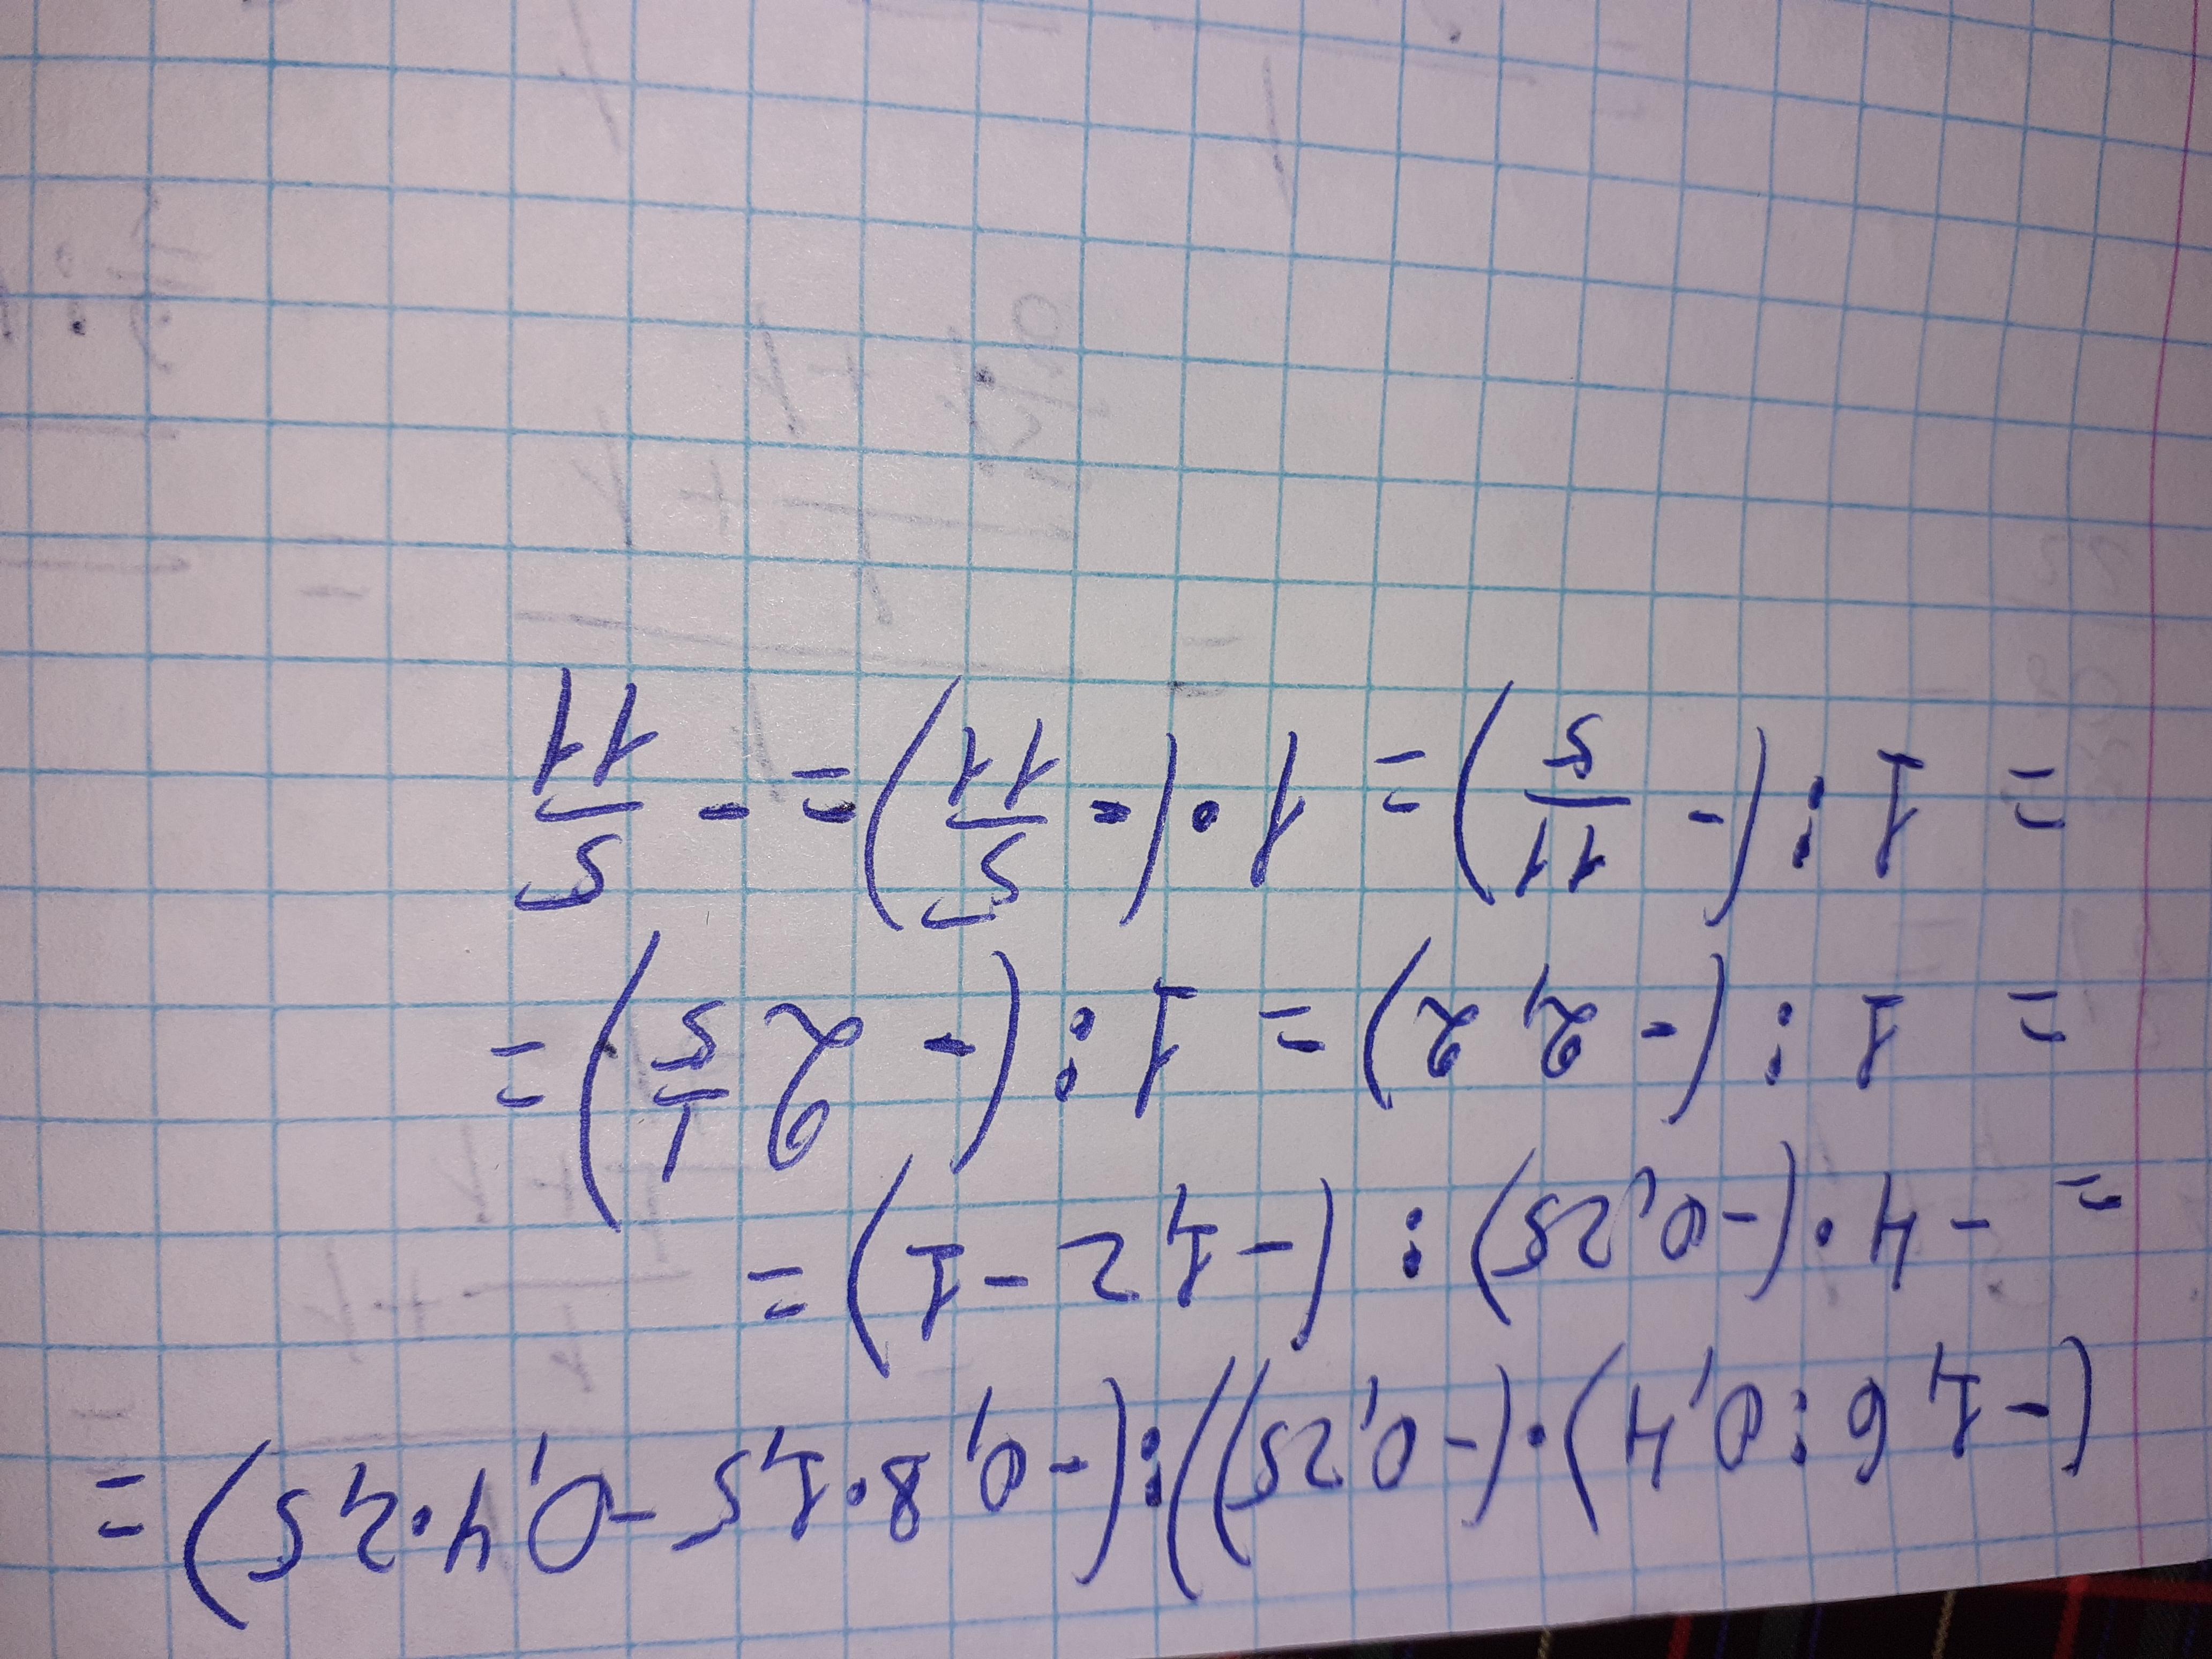 (-1,6:0,4)·(-0,25)):(-0,8·1,5-0,4·2,5)=
= -4·(-0,25):(-1,2-1)=
= 1:(-2,2)=1:(-2 1/5)=
= 1:(-11/5)=1·(-5/11)=-5/11